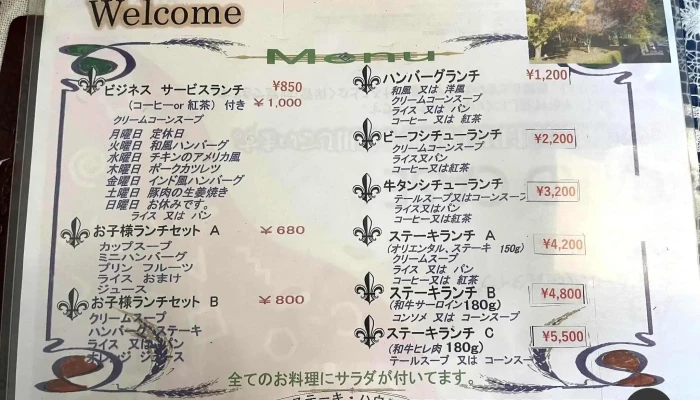 Welcome
Menu
ビジネス サービスランチ ¥850
(コーヒーor 紅茶) 付き ¥1,000
クリームコーンスープ
月曜日 定休日
火曜日 和風ハンバーグ
水曜日 チキンのアメリカ風
木曜日 ポークカツレツ
金曜日 インド風ハンバーグ
土曜日 豚肉の生姜焼き
日曜日 お休みです。
ライス 又は パン
お子様ランチセット A ¥680
カップスープ
ミニハンバーグ
プリン フルーツ
ライス おまけ
ジュース
お子様ランチセット B ¥800
クリームスープ
ハンバーグ ステーキ
ライス 又は パン
オレンジ ジュース
ハンバーグランチ ¥1,200
和風 又は 洋風
クリームコーンスープ
ライス 又は パン
コーヒー 又は 紅茶
ビーフシチューランチ ¥2,200
クリームコーンスープ
ライス又パン
コーヒー又は紅茶
牛タンシチューランチ ¥3,200
テールスープ又はコーンスープ
ライス又はパン
コーヒー又は紅茶
ステーキランチ A ¥4,200
(オリエンタル、ステーキ 150g)
クリームスープ
ライス 又は パン
コーヒー 又は 紅茶
ステーキランチ B ¥4,800
(和牛サーロイン180g)
コンソメ 又は コーンスープ
ステーキランチ C ¥5,500
(和牛ヒレ肉 180g)
テールスープ 又は コーンスー
全てのお料理にサラダが付いてます。
ステーキ・ハウ